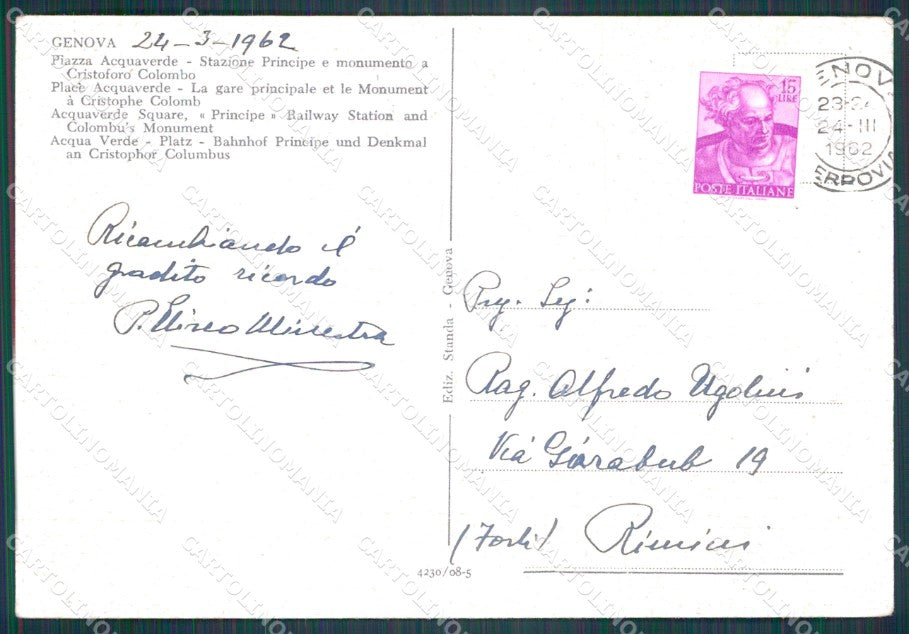 GENOVA 24-3-1962
Piazza Acquaverde - Stazione Principe e monumento a
Cristoforo Colombo
Place Acquaverde - La gare principale et le Monument
à Cristophe Colomb
Acquaverde Square, « Principe » Railway Station and
Colombu's Monument
Acqua Verde - Platz - Bahnhof Principe und Denkmal
an Cristophor Columbus
Ricambiando il
gradito ricordo
P. Eliseo Minestra
Ediz. Standa - Genova
4230/08-5
15
LIRE
POSTE ITALIANE
ENOVA
23-24
24-III
1962
FERROVIA
Preg. Sig:
Rag. Alfredo Ugolini
Via Giarabub 19
(Forlì) Rimini
CARTOLINOMANIA